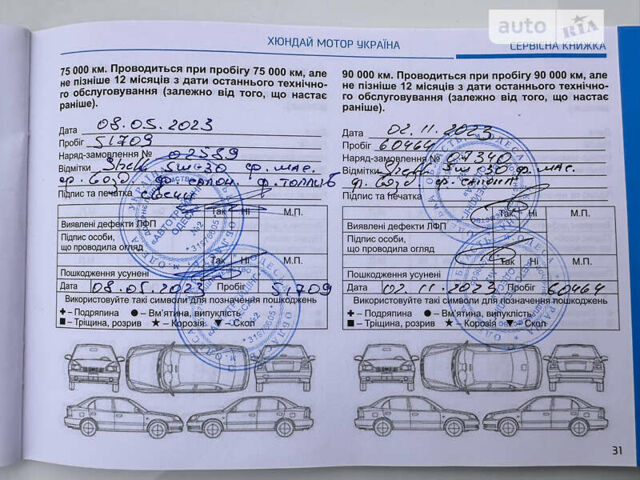 auto RIA
ХЮНДАЙ МОТОР УКРАЇНА
СЕРВІСНА КНИЖКА
75 000 км. Проводиться при пробігу 75 000 км, але
не пізніше 12 місяців з дати останнього технічно-
го обслуговування (залежно від того, що настає
раніше).
Дата 08.05.2023
Пробіг 51709
Наряд-замовлення № 02589
Відмітки Shell 5w030 ф.мас.
ф.возд ф.салон ф.топлив
Підпис та печатка
Так Ні М.П.
Виявлені дефекти ЛФП
Підпис особи,
що проводила огляд
Так Ні М.П.
Пошкодження усунені
Дата 08.05.2023 Пробіг 51709
Використовуйте такі символи для позначення пошкоджень
+ - Подряпина ● - Вм'ятина, випуклість
■ - Тріщина, розрив ★ - Корозія ▼ - Скол
90 000 км. Проводиться при пробігу 90 000 км, але
не пізніше 12 місяців з дати останнього технічно-
го обслуговування (залежно від того, що настає
раніше).
Дата 02.11.2023
Пробіг 60464
Наряд-замовлення № 07340
Відмітки Shell 5w030 ф.мас.
ф.возд ф.салон
Підпис та печатка
Так Ні М.П.
Виявлені дефекти ЛФП
Підпис особи,
що проводила огляд
Так Ні М.П.
Пошкодження усунені
Дата 02.11.2023 Пробіг 60464
Використовуйте такі символи для позначення пошкоджень
+ - Подряпина ● - Вм'ятина, випуклість
■ - Тріщина, розрив ★ - Корозія ▼ - Скол
31